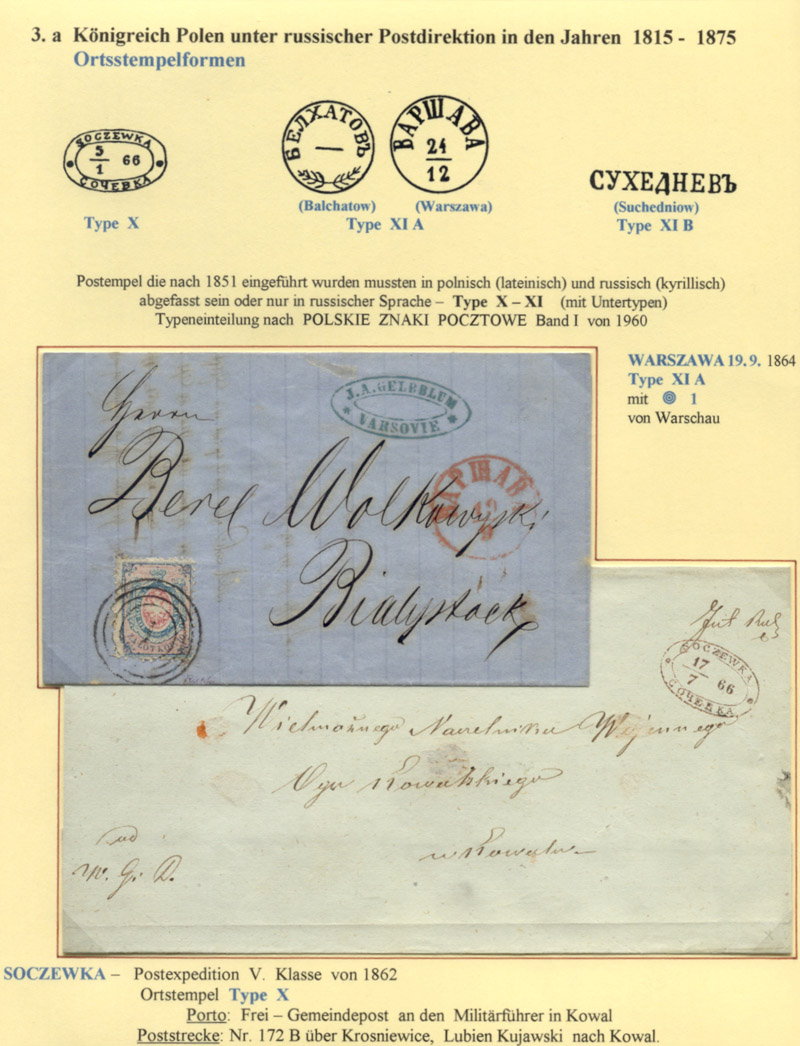 3. a Königreich Polen unter russischer Postdirektion in den Jahren 1815 - 1875
Ortsstempelformen
SOCZEWKA
5
1
66
СОЧЕВКА
Type X
БЕЛХАТОВЪ
(Balchatow)
ВАРШАВА
24
12
(Warszawa)
Type XI A
СУХЕДНЕВЪ
(Suchedniow)
Type XI B
Postempel die nach 1851 eingeführt wurden mussten in polnisch (lateinisch) und russisch (kyrillisch)
abgefasst sein oder nur in russischer Sprache – Type X – XI (mit Untertypen)
Typeneinteilung nach POLSKIE ZNAKI POCZTOWE Band I von 1960
WARSZAWA 19. 9. 1864
Type XI A
mit 1
von Warschau
J. A. GELBBLUM
VARSOVIE
Herrn
Berel Wolkowyski
Bialystock
SOCZEWKA
17
7
66
СОЧЕВКА
Wielmożnego Naczelnika Wojennego
Ogu Kowalskiego
w Kowalu
od
W. G. D.
SOCZEWKA – Postexpedition V. Klasse von 1862
Ortstempel Type X
Porto: Frei – Gemeindepost an den Militärführer in Kowal
Poststrecke: Nr. 172 B über Krosniewice, Lubien Kujawski nach Kowal.